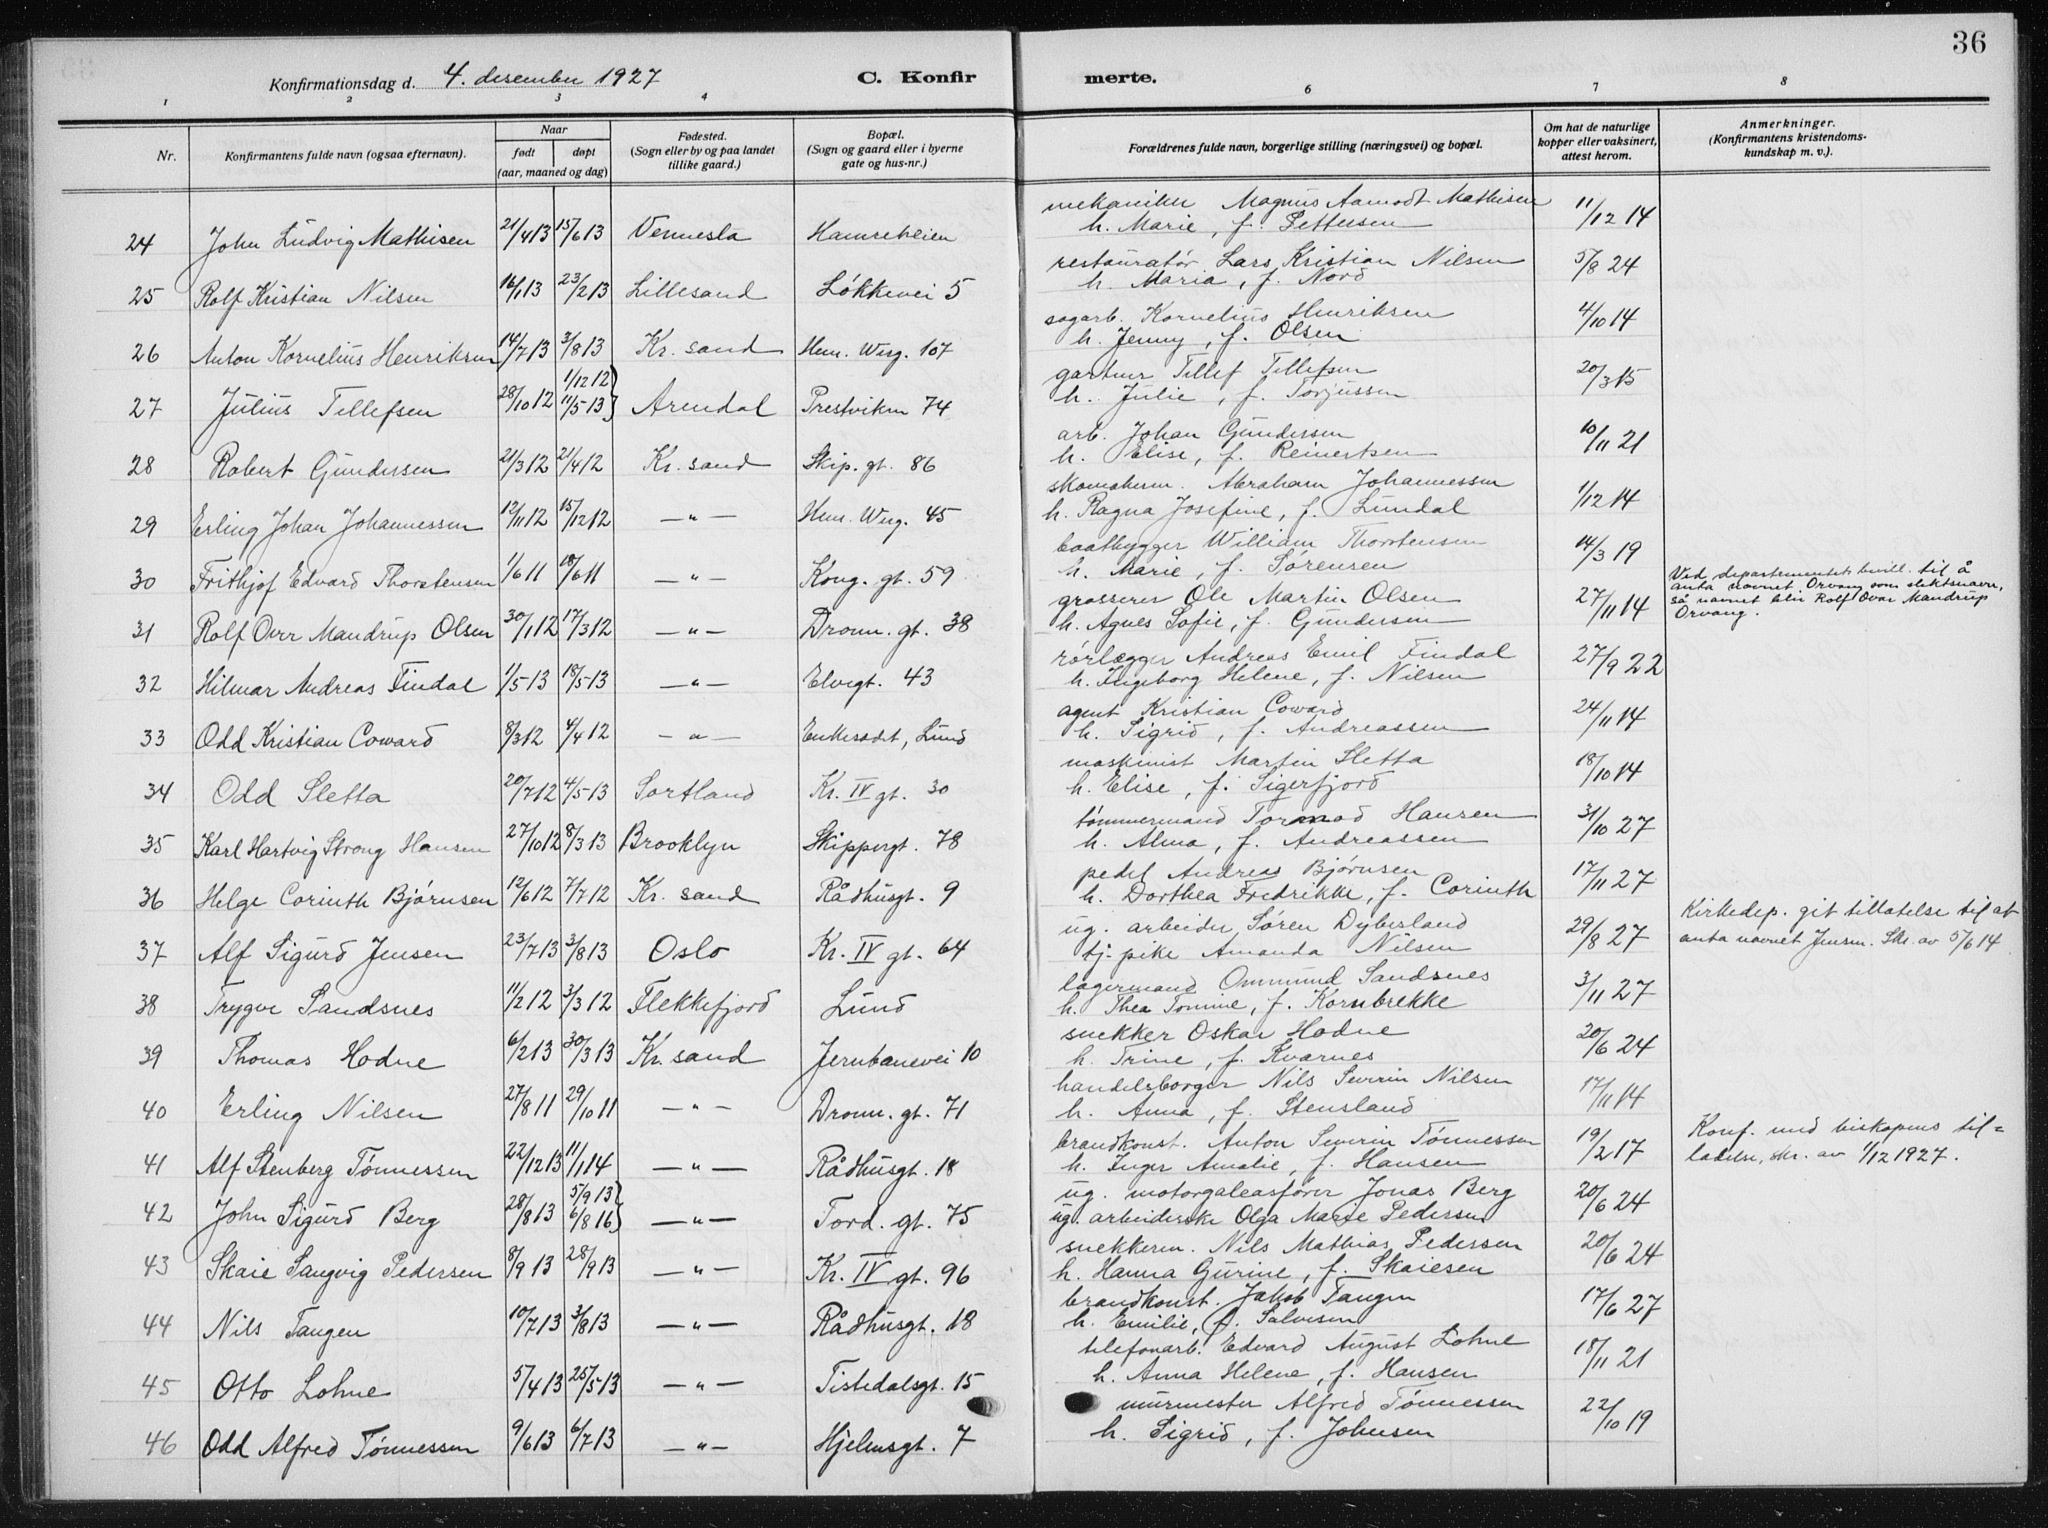 36
Konfirmationsdag d. 4. desember 1927 C. Konfirmerte.
1 2 3 4 6 7 8
Nr. Konfirmantens fulde navn (ogsaa efternavn). Naar født døpt (aar, maaned og dag) Fødested. (Sogn eller by og paa landet tillike gaard.) Bopæl. (Sogn og gaard eller i byerne gate og hus-nr.) Forældrenes fulde navn, borgerlige stilling (næringsvei) og bopæl. Om hat de naturlige kopper eller vaksinert, attest herom. Anmerkninger. (Konfirmantens kristendoms-kundskap m. v.).
mekaniker Magnus Aamodt Mathisen
24 John Ludvig Mathisen 21/4 13 15/6 13 Vennesla Hamreheien h. Marie, f. Pettersen 11/12 14
restauratør Lars Kristian Nilsen
25 Rolf Kristian Nilsen 16/1 13 23/2 13 Lillesand Løkkevei 5 h. Maria, f. Nord 5/8 24
sagarb. Kornelius Henriksen
26 Anton Kornelius Henriksen 14/7 13 3/8 13 Kr. sand Hen. Werg. 107 h. Jenny, f. Olsen 4/10 14
gartner Tellef Tellefsen
27 Julius Tellefsen 28/10 12 1/12 12 11/5 13 Arendal Prestviken 74 h. Julie, f. Torjussen 20/3 15
arb. Johan Gundersen
28 Robert Gundersen 21/3 12 21/4 12 Kr. sand Skip. gt. 86 h. Elise, f. Reinertsen 10/11 21
skomakerm. Abraham Johannessen
29 Erling Johan Johannessen 12/11 12 15/12 12 —"— Hen. Werg. 45 h. Ragna Josefine, f. Lundal 1/12 14
baatbygger William Thorstensen
30 Frithjof Edvard Thorstensen 1/6 11 18/6 11 —"— Kong. gt. 59 h. Marie, f. Sørensen 14/3 19
grosserer Ole Martin Olsen
31 Rolf Ovar Mandrup Olsen 30/1 12 17/3 12 —"— Dronn. gt. 38 h. Agnes Sofie, f. Gundersen 27/11 14
Ved departementets bevill. til å
anta navnet Orvang som slektsnavn,
så navnet blir Rolf Ovar Mandrup
Orvang.
rørlægger Andreas Emil Findal
32 Hilmar Andreas Findal 1/5 13 18/5 13 —"— Elvegt. 43 h. Ingeborg Helene, f. Nilsen 27/9 22
agent Kristian Coward
33 Odd Kristian Coward 8/3 12 4/4 12 —"— Enkesædet, Lund h. Sigrid, f. Andreassen 24/11 14
maskinist Martin Sletta
34 Odd Sletta 20/7 12 4/5 13 Sortland Kr. IV gt. 30 h. Elise, f. Sigerfjord 18/10 14
tømmermand Tormod Hansen
35 Karl Hartvig Strong Hansen 27/10 12 8/3 13 Brooklyn Skippergt. 78 h. Alma, f. Andreassen 31/10 27
pedel Andreas Bjørnsen
36 Helge Corinth Bjørnsen 12/6 12 7/7 12 Kr. sand Rådhusgt. 9 h. Dorthea Fredrikke, f. Corinth 17/11 27
ug. arbeider Søren Dyberland
37 Alf Sigurd Jensen 23/7 13 3/8 13 Oslo Kr. IV gt. 64 tj. pike Amanda Nilsen 29/8 27
Kirkedep. git tillatelse til at
anta navnet Jensen. Skr. av 5/6 14
lagermand Ommund Sandsnes
38 Trygve Sandsnes 11/2 12 3/3 12 Flekkefjord Lund h. Thea Tomine, f. Kornbrekke 3/11 27
snekker Oskar Hodne
39 Thomas Hodne 6/2 13 30/3 13 Kr. sand Jernbanevei 10 h. Trine, f. Kvarnes 20/6 24
handelsborger Nils Severin Nilsen
40 Erling Nilsen 27/8 11 29/10 11 —"— Dronn. gt. 71 h. Anna, f. Stensland 17/11 14
brandkonst. Anton Severin Tønnessen
41 Alf Stenberg Tønnessen 22/12 13 11/1 14 —"— Rådhusgt. 18 h. Inger Amalie, f. Hansen 19/2 17
Konf. med biskopens til=
ladelse, skr. av 1/12 1927.
ug. motorgaleasfører Jonas Berg
42 John Sigurd Berg 28/8 13 5/9 13 6/8 16 —"— Tord. gt. 75 ug. arbeiderske Olga Marie Pedersen 20/6 24
snekkerm. Nils Mathias Pedersen
43 Skaie Sangvig Pedersen 8/9 13 28/9 13 —"— Kr. IV gt. 96 h. Hanna Gurine, f. Skaiesen 20/6 24
brandkonst. Jakob Tangen
44 Nils Tangen 10/7 13 3/8 13 —"— Rådhusgt. 18 h. Emilie, f. Salvesen 17/6 27
telefonarb. Edvard August Lohne
45 Otto Lohne 5/4 13 25/5 13 —"— Tistedalsgt. 15 h. Anna Helene, f. Hansen 18/11 21
murmester Alfred Tønnessen
46 Odd Alfred Tønnessen 9/6 13 6/7 13 —"— Hjelmsgt. 7 h. Sigrid, f. Johnsen 22/10 19